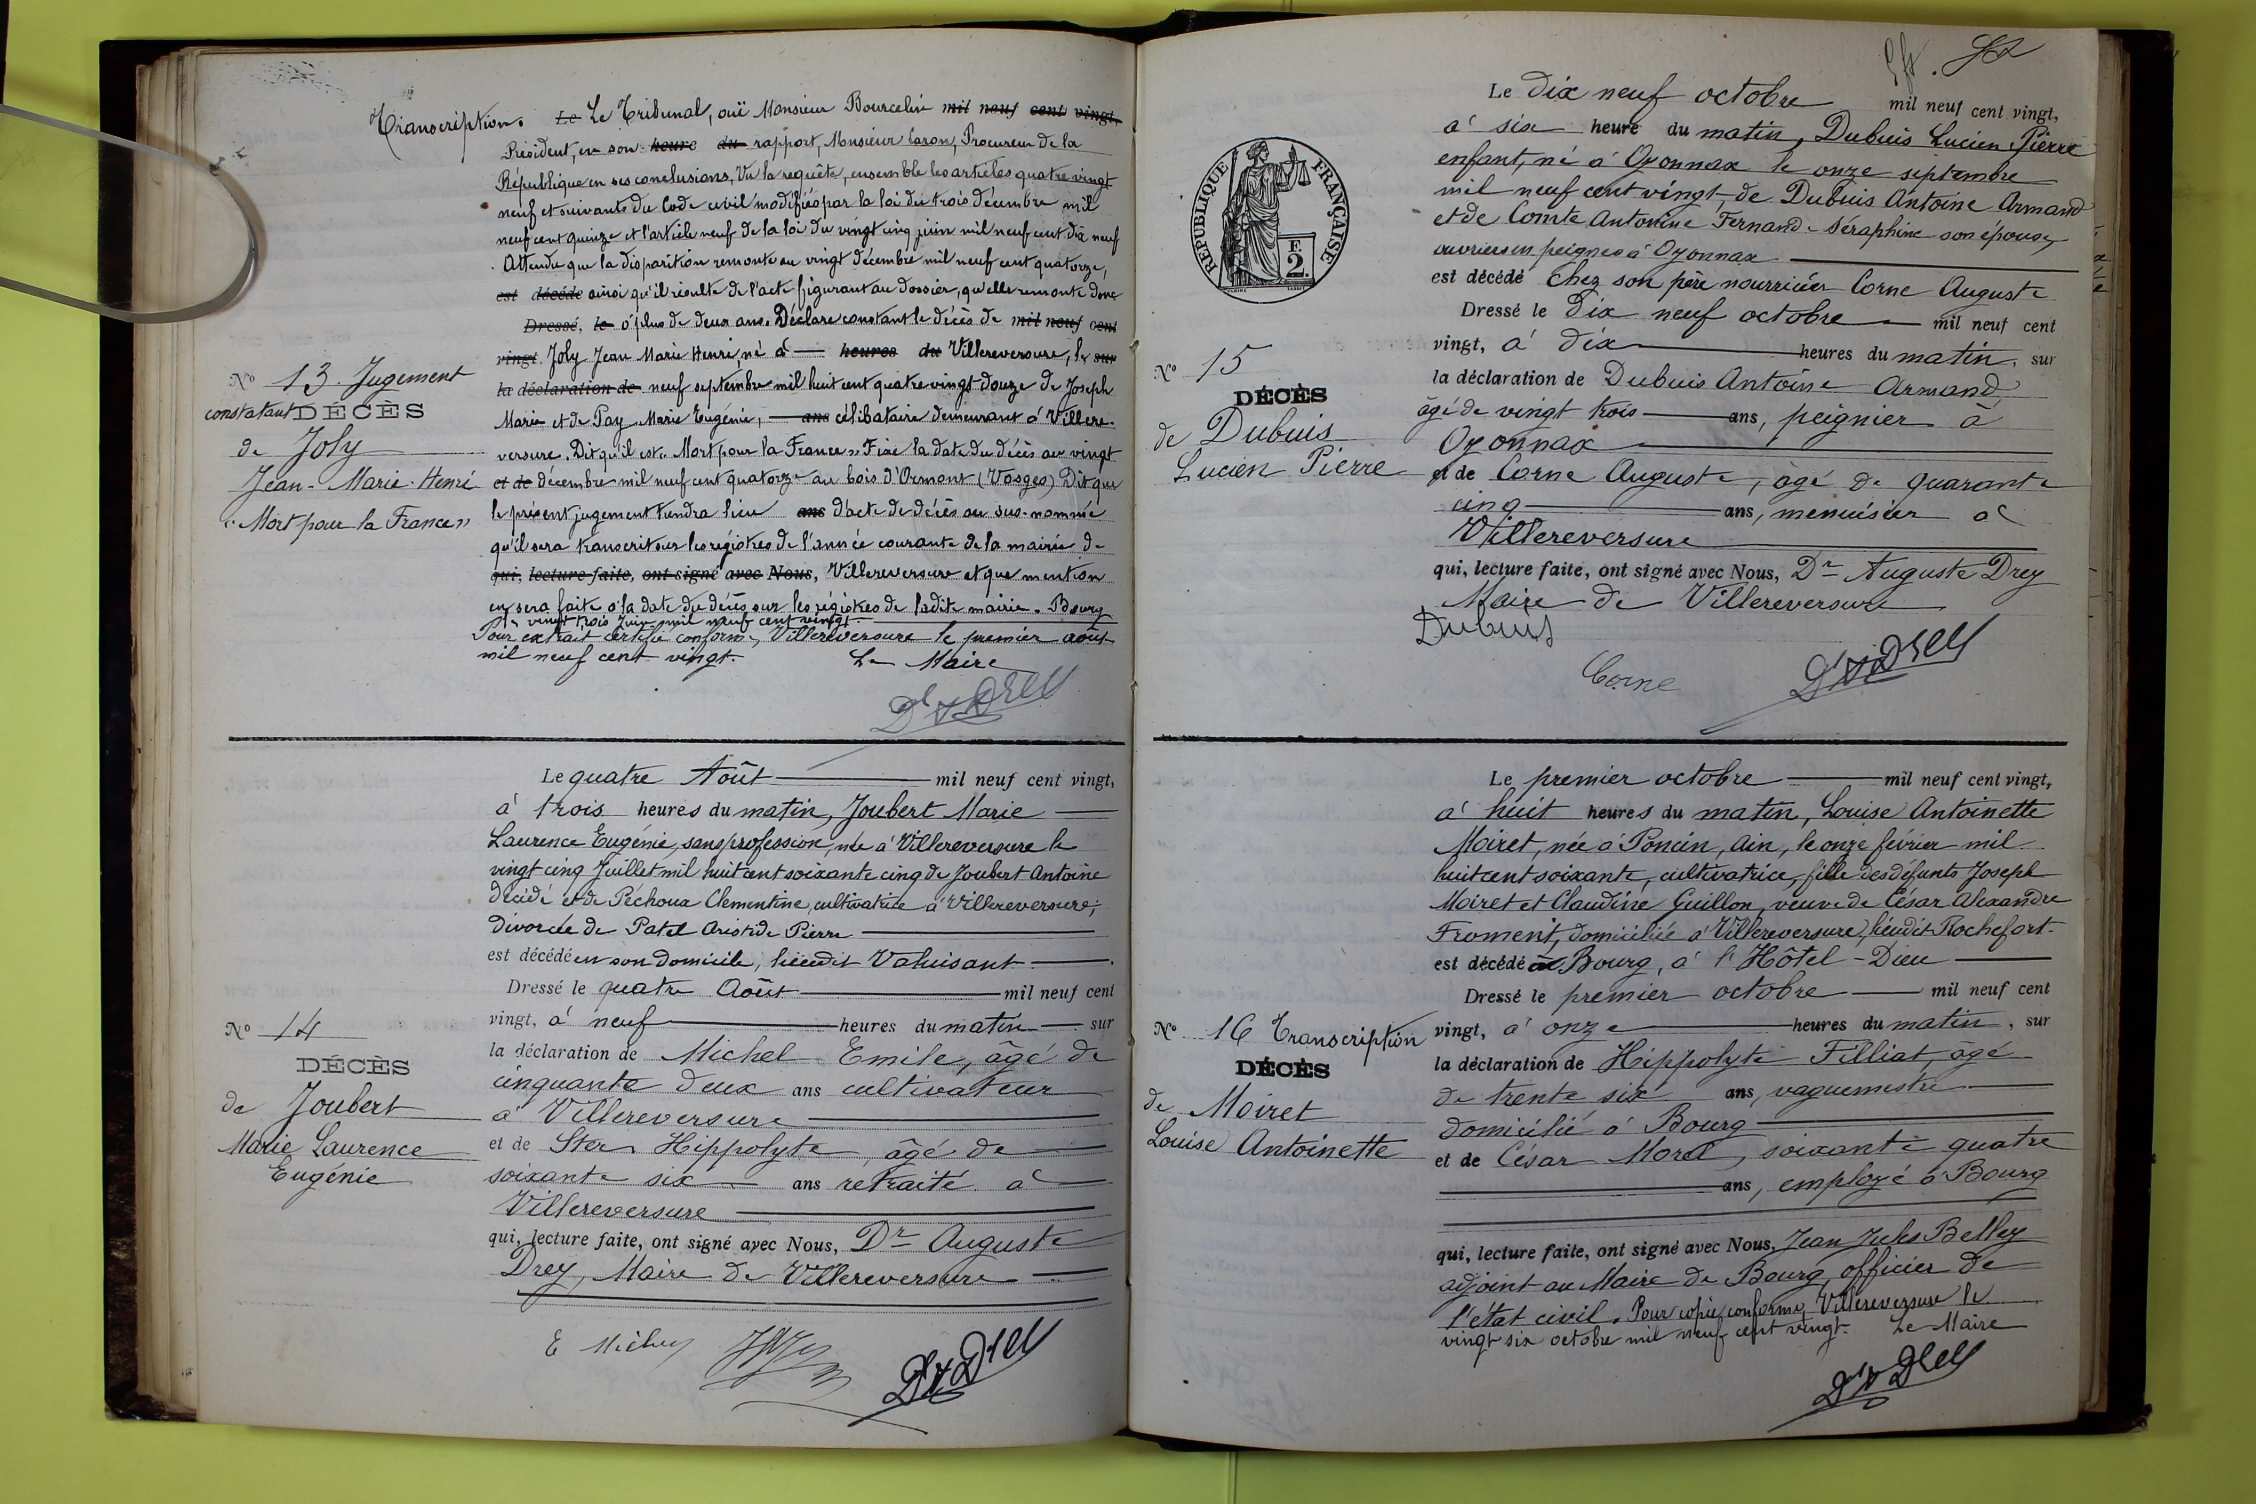 Transcription. Le Le Tribunal, ouï Monsieur Bourcelin mil neuf cent vingt,
Président, en son heure du rapport, Monsieur Caron, Procureur de la
République en ses conclusions, Vu la requête, ensemble les articles quatre vingt
neuf et suivants du Code civil modifiés par la loi du trois décembre mil
neuf cent quinze et l'article neuf de la loi du vingt cinq juin mil neuf cent dix neuf
. Attendu que la disparition remonte au vingt décembre mil neuf cent quatorze,
est décédé ainsi qu'il résulte de l'acte figurant au dossier, qu'elle remonte donc
Dressé, le à plus de deux ans. Déclare constant le décès de mil neuf cent
vingt Joly Jean Marie Henri, né à — heures du Villereversure, le sur
la déclaration de neuf septembre mil huit cent quatre vingt douze de Joseph
Marie et de Pay Marie Eugénie, — ans célibataire demeurant à Villere-
versure. Dit qu'il est « Mort pour la France » Fixe la date du décès au vingt
et de décembre mil neuf cent quatorze au bois d'Ormont (Vosges) Dit que
le présent jugement tiendra lieu ans d'acte de décès au sus-nommé
qu'il sera transcrit sur les régistres de l'année courante de la mairie de
qui, lecture faite, ont signé avec Nous, Villereversure et que mention
en sera faite à la date du décès sur les régistres de ladite mairie. Bourg
le vingt trois Juin mil neuf cent vingt.
Pour extrait certifié conforme, Villereversure le premier août
mil neuf cent vingt. Le Maire
Dr A Drey
No 13. Jugement
constatant DÉCÈS
de Joly
Jean-Marie-Henri
"Mort pour la France"
Le quatre Août mil neuf cent vingt,
à trois heures du matin, Joubert Marie
Laurence Eugénie, sans profession, née à Villereversure le
vingt cinq Juillet mil huit cent soixante cinq de Joubert Antoine
décédé et de Péchoux Clementine, cultivatrice à Villereversure;
divorcée de Patel Aristide Pierre
est décédé en son domicile, lieudit Valuisant
Dressé le quatre Août mil neuf cent
vingt, à neuf heures du matin sur
la déclaration de Michel Emile, âgé de
cinquante deux ans cultivateur
à Villereversure
et de Ster Hippolyte, âgé de
soixante six ans retraité à
Villereversure
qui, lecture faite, ont signé avec Nous, Dr Auguste
Drey, Maire de Villereversure
E Michel
Dr A Drey
No 14
DÉCÈS
de Joubert
Marie Laurence
Eugénie
RÉPUBLIQUE FRANÇAISE
F.
2.
Le dix neuf octobre mil neuf cent vingt,
à six heure du matin, Dubuis Lucien Pierre
enfant, né à Oyonnax le onze septembre
mil neuf cent vingt, de Dubuis Antoine Armand
et de Comte Antonine Fernande Séraphine son épouse,
ouvriers en peignes à Oyonnax
est décédé chez son père nourricier Corne Auguste
Dressé le dix neuf octobre mil neuf cent
vingt, à dix heures du matin, sur
la déclaration de Dubuis Antoine Armand,
âgé de vingt trois ans, peignier à
Oyonnax
et de Corne Auguste, âgé de quarante
cinq ans, menuisier à
Villereversure
qui, lecture faite, ont signé avec Nous, Dr Auguste Drey
Maire de Villereversure
Dubuis
Corne
Dr A Drey
No 15
DÉCÈS
de Dubuis
Lucien Pierre
Le premier octobre mil neuf cent vingt,
à huit heures du matin, Louise Antoinette
Moiret, née à Poncin, Ain, le onze février mil
huit cent soixante, cultivatrice, fille des défunts Joseph
Moiret et Claudine Guillon, veuve de César Alexandre
Froment, domiciliée à Villereversure, lieudit Rochefort.
est décédé à Bourg, à l'Hôtel-Dieu
Dressé le premier octobre mil neuf cent
vingt, à onze heures du matin, sur
la déclaration de Hippolyte Filliat, âgé
de trente six ans, vaguemestre
domicilié à Bourg
et de César Morel, soixante quatre
ans, employé à Bourg
qui, lecture faite, ont signé avec Nous, Jean Jules Belley
adjoint au Maire de Bourg, officier de
l'état civil. Pour copie conforme, Villereversure le
vingt six octobre mil neuf cent vingt. Le Maire
Dr A Drey
No 16 Transcription
DÉCÈS
de Moiret
Louise Antoinette